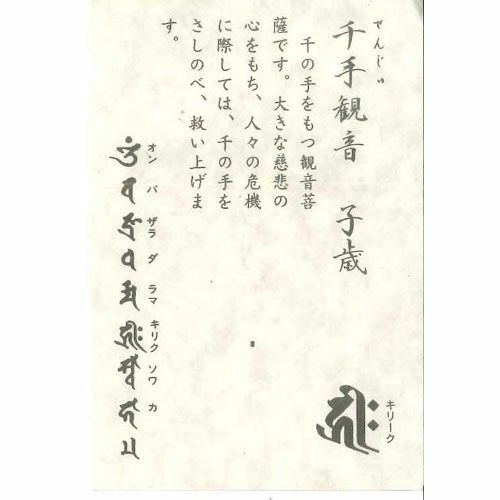 せんじゅ
千手観音　子歳
千の手をもつ観音菩
薩です。大きな慈悲の
心をもち、人々の危機
に際しては、千の手を
さしのべ、救い上げま
す。
オン バ ザラ ダ ラマ キリク ソワ カ
キリーク